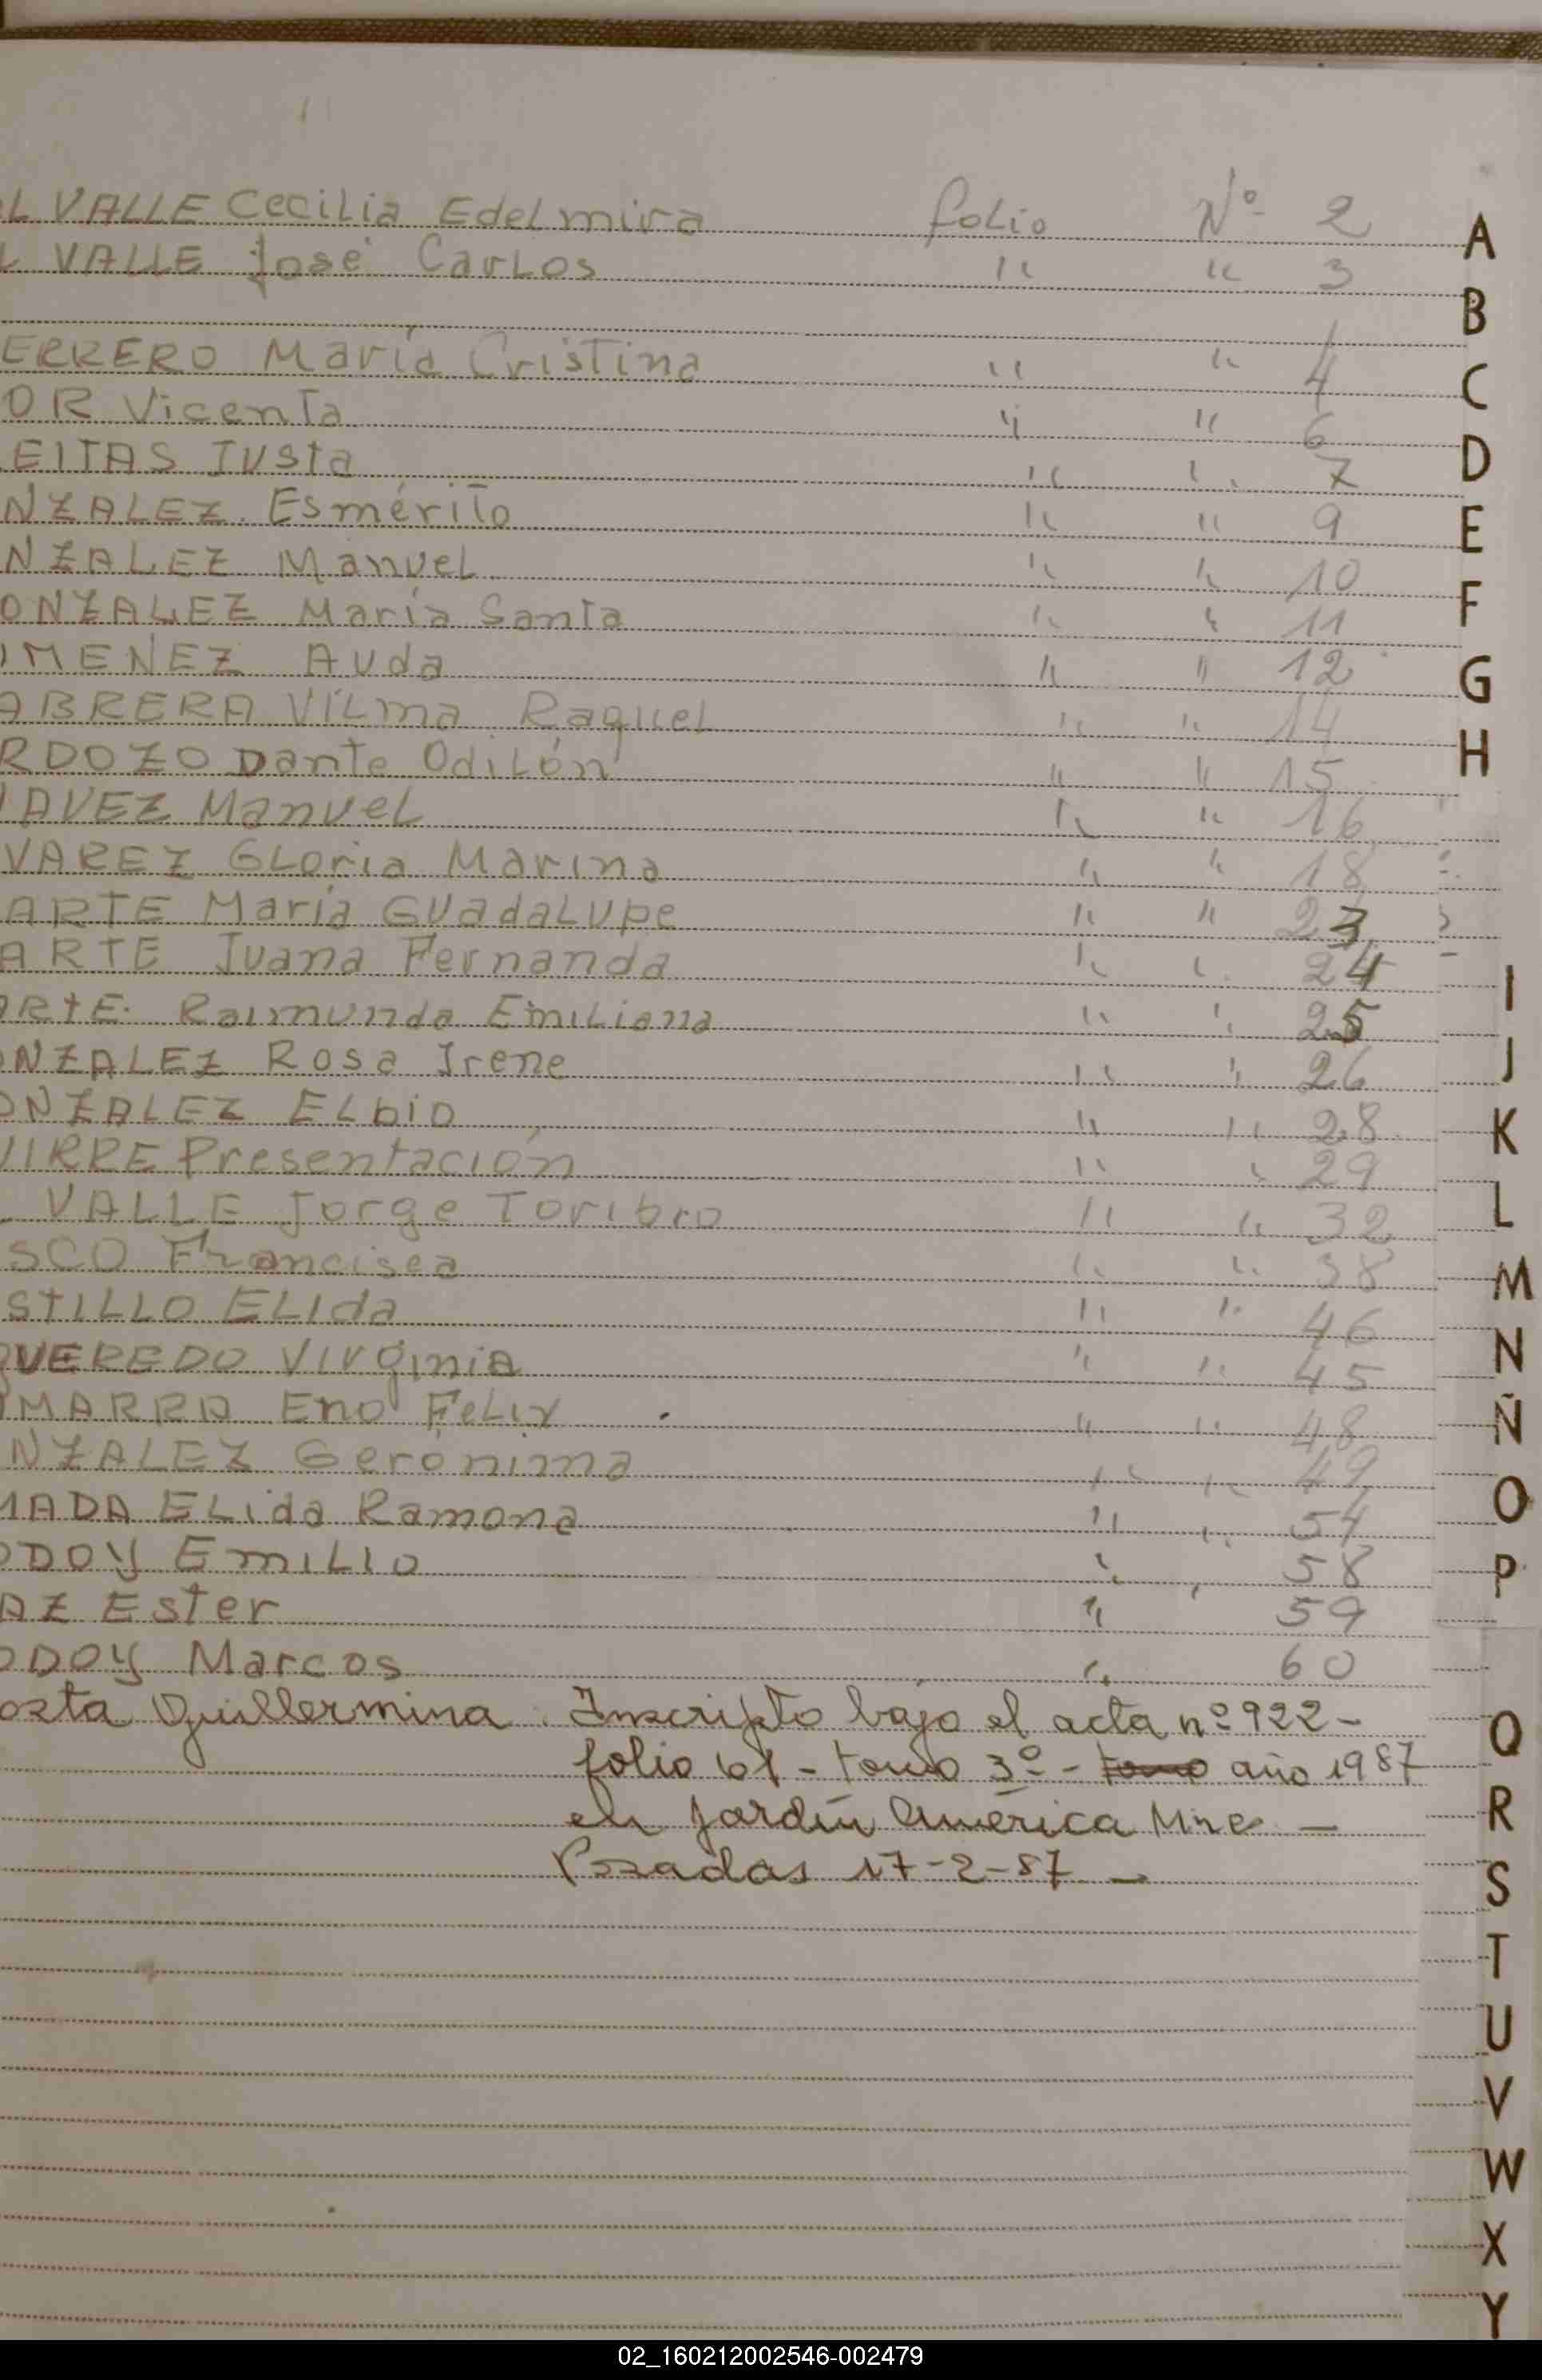 L VALLE Cecilia Edelmira folio Nº 2
L VALLE José Carlos " " 3
ERRERO María Cristina " " 4
OR Vicenta " " 6
EITAS Justa " " 7
NZALEZ Esmérito " " 9
NZALEZ Manuel " " 10
ONZALEZ María Santa " " 11
IMENEZ Auda " " 12
ABRERA Vilma Raquel " " 14
RDOZO Dante Odilón " " 15
AVEZ Manuel " " 16
VAREZ Gloria Marina " " 18
ARTE María Guadalupe " " 23
ARTE Juana Fernanda " " 24
ARTE Raimunda Emiliana " " 25
ONZALEZ Rosa Irene " " 26
ONZALEZ Elbio " " 28
UIRRE Presentación " " 29
VALLE Jorge Toribio " " 32
SCO Francisca " " 38
STILLO Elida " " 46
QUEREDO Virginia " " 45
MARRA Eno Felix " " 48
NZALEZ Gerónima " " 49
MADA Elida Ramona " " 54
ODOY Emilio " " 58
AZ Ester " 59
ODOY Marcos " 60
osta Guillermina. Inscripto bajo el acta nº 922 -
folio 61 - tomo 3º - tomo año 1987
en Jardín América Mnes -
Posadas 17-2-87 -
A
B
C
D
E
F
G
H
I
J
K
L
M
N
Ñ
O
P
Q
R
S
T
U
V
W
X
Y
02_160212002546-002479